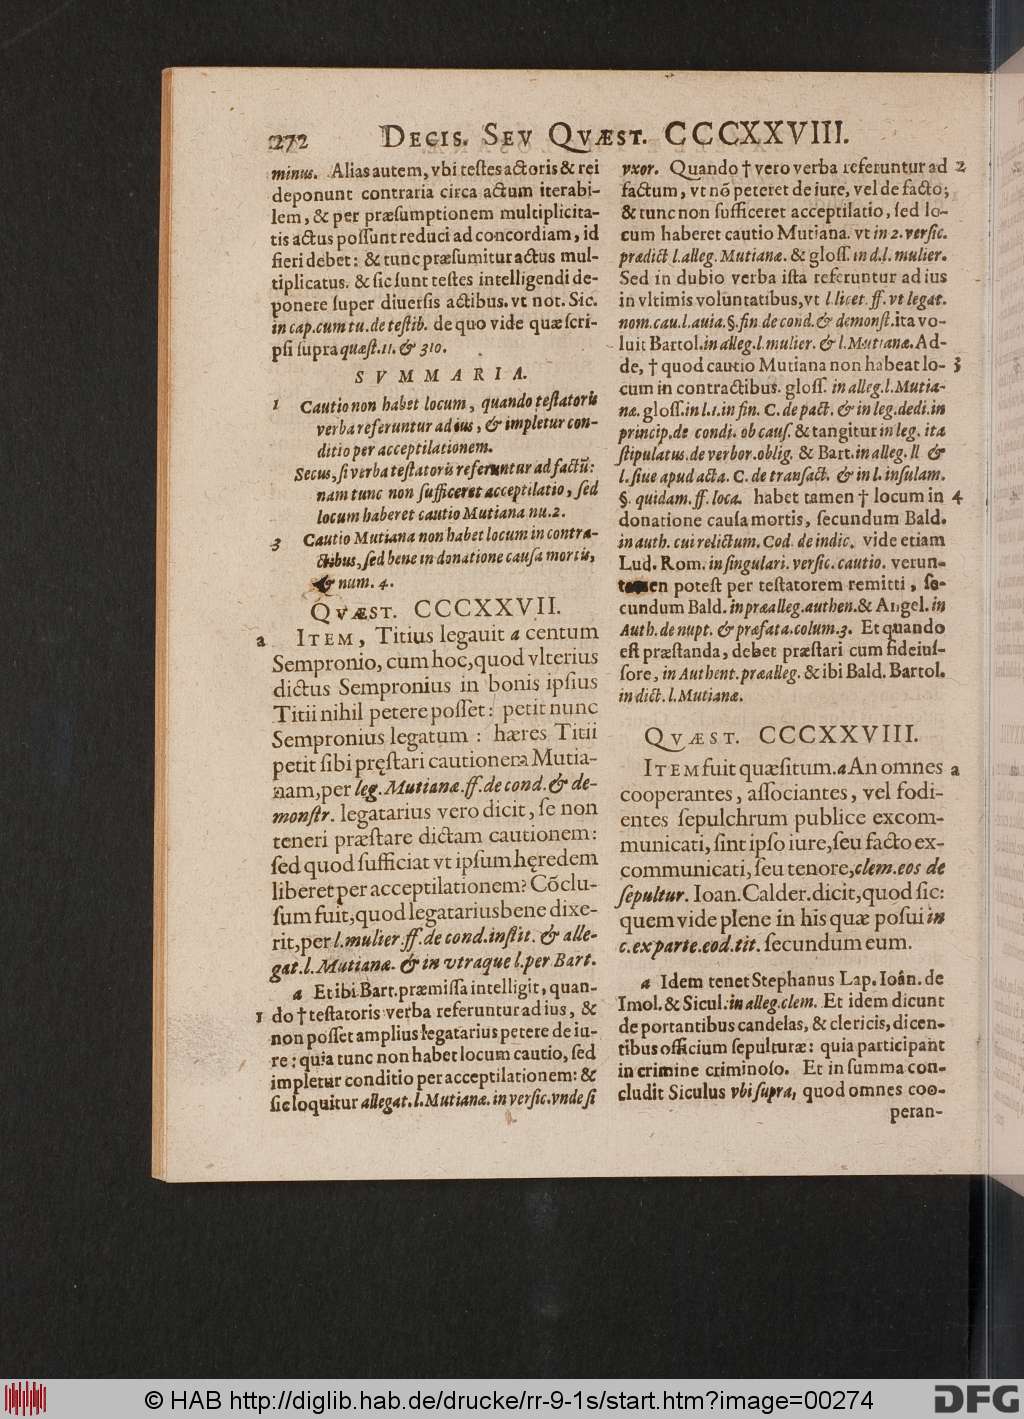 272 DECIS. SEV QVÆST. CCCXXVIII.
minus. Alias autem, vbi testes actoris & rei
deponunt contraria circa actum iterabi-
lem, & per præsumptionem multiplicita-
tis actus possunt reduci ad concordiam, id
fieri debet: & tunc præsumitur actus mul-
tiplicatus. & sic sunt testes intelligendi de-
ponere super diuersis actibus. vt not. Sic.
in cap. cum tu. de testib. de quo vide quæ scri-
psi supra quæst. 11. & 310.
SVMMARIA.
1 Cautio non habet locum, quando testatoris
verba referuntur ad ius, & impletur con-
ditio per acceptilationem.
Secus, si verba testatoris referuntur ad factū:
nam tunc non sufficeret acceptilatio, sed
locum haberet cautio Mutiana nu. 2.
3 Cautio Mutiana non habet locum in contra-
ctibus, sed bene in donatione causa mortis,
& num. 4.
QVÆST. CCCXXVII.
a ITEM, Titius legauit a centum
Sempronio, cum hoc, quod vlterius
dictus Sempronius in bonis ipsius
Titii nihil petere posset: petit nunc
Sempronius legatum: hæres Titii
petit sibi pręstari cautionem Mutia-
nam, per leg. Mutianæ. ff. de cond. & de-
monstr. legatarius vero dicit, se non
teneri præstare dictam cautionem:
sed quod sufficiat vt ipsum hęredem
liberet per acceptilationem? Cōclu-
sum fuit, quod legatarius bene dixe-
rit, per l. mulier. ff. de cond. instit. & alle-
gat. l. Mutianæ. & in vtraque l. per Bart.
a Et ibi Bart. præmissa intelligit, quan-
1 do † testatoris verba referuntur ad ius, &
non posset amplius legatarius petere de iu-
re: quia tunc non habet locum cautio, sed
impletur conditio per acceptilationem: &
sic loquitur allegat. l. Mutianæ. in versic. vnde si
vxor. Quando † vero verba referuntur ad 2
factum, vt nō peteret de iure, vel de facto;
& tunc non sufficeret acceptilatio, sed lo-
cum haberet cautio Mutiana. vt in 2. versic.
prædict l. alleg. Mutianæ. & gloss. in d. l. mulier.
Sed in dubio verba ista referuntur ad ius
in vltimis voluntatibus, vt l. licet. ff. vt legat.
nom. cau. l. auia. §. fin. de cond. & demonst. ita vo-
luit Bartol. in alleg. l. mulier. & l. Mutianæ. Ad-
de, † quod cautio Mutiana non habeat lo- 3
cum in contractibus. gloss. in alleg. l. Mutia-
næ. gloss. in l. 1. in fin. C. de pact. & in leg. dedi. in
princip. de condi. ob caus. & tangitur in leg. ita
stipulatus. de verbor. oblig. & Bart. in alleg. ll &
l. siue apud acta. C. de transact. & in l. insulam.
§. quidam. ff. loca. habet tamen † locum in 4
donatione causa mortis, secundum Bald.
in auth. cui relictum. Cod. de indic. vide etiam
Lud. Rom. in singulari. versic. cautio. verun-
tamen potest per testatorem remitti, se-
cundum Bald. in præalleg. authen. & Angel. in
Auth. de nupt. & præfata. colum. 3. Et quando
est præstanda, debet præstari cum fideius-
sore, in Authent. præalleg. & ibi Bald. Bartol.
in dict. l. Mutianæ.
QVÆST. CCCXXVIII.
ITEM fuit quæsitum. a An omnes a
cooperantes, associantes, vel fodi-
entes sepulchrum publice excom-
municati, sint ipso iure, seu facto ex-
communicati, seu tenore, clem. eos de
sepultur. Ioan. Calder. dicit, quod sic:
quem vide plene in his quæ posui in
c. ex parte. eod. tit. secundum eum.
a Idem tenet Stephanus Lap. Ioân. de
Imol. & Sicul: in alleg. clem. Et idem dicunt
de portantibus candelas, & clericis, dicen-
tibus officium sepulturæ: quia participant
in crimine criminoso. Et in summa con-
cludit Siculus vbi supra, quod omnes coo-
peran-
© HAB http://diglib.hab.de/drucke/rr-9-1s/start.htm?image=00274
DFG